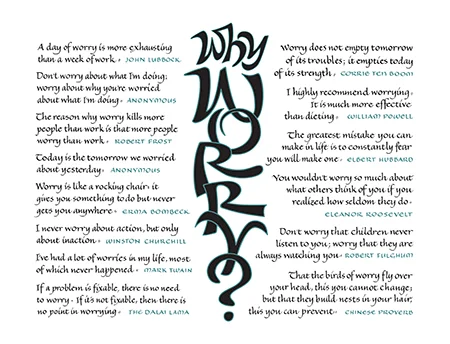 Why
WORRY?
A day of worry is more exhausting
than a week of work. JOHN LUBBOCK
Don't worry about what I'm doing;
worry about why you're worried
about what I'm doing ANONYMOUS
The reason why worry kills more
people than work is that more people
worry than work. ROBERT FROST
Today is the tomorrow we worried
about yesterday ANONYMOUS
Worry is like a rocking chair: it
gives you something to do but never
gets you anywhere ERMA BOMBECK
I never worry about action, but only
about inaction WINSTON CHURCHILL
I've had a lot of worries in my life, most
of which never happened. MARK TWAIN
If a problem is fixable, there is no need
to worry. If it's not fixable, then there is
no point in worrying THE DALAI LAMA
Worry does not empty tomorrow
of its troubles; it empties today
of its strength CORRIE TEN BOOM
I highly recommend worrying.
It is much more effective
than dieting WILLIAM POWELL
The greatest mistake you can
make in life is to constantly fear
you will make one ELBERT HUBBARD
You wouldn't worry so much about
what others think of you if you
realized how seldom they do.
ELEANOR ROOSEVELT
Don't worry that children never
listen to you; worry that they are
always watching you ROBERT FULGHUM
That the birds of worry fly over
your head, this you cannot change;
but that they build nests in your hair,
this you can prevent CHINESE PROVERB